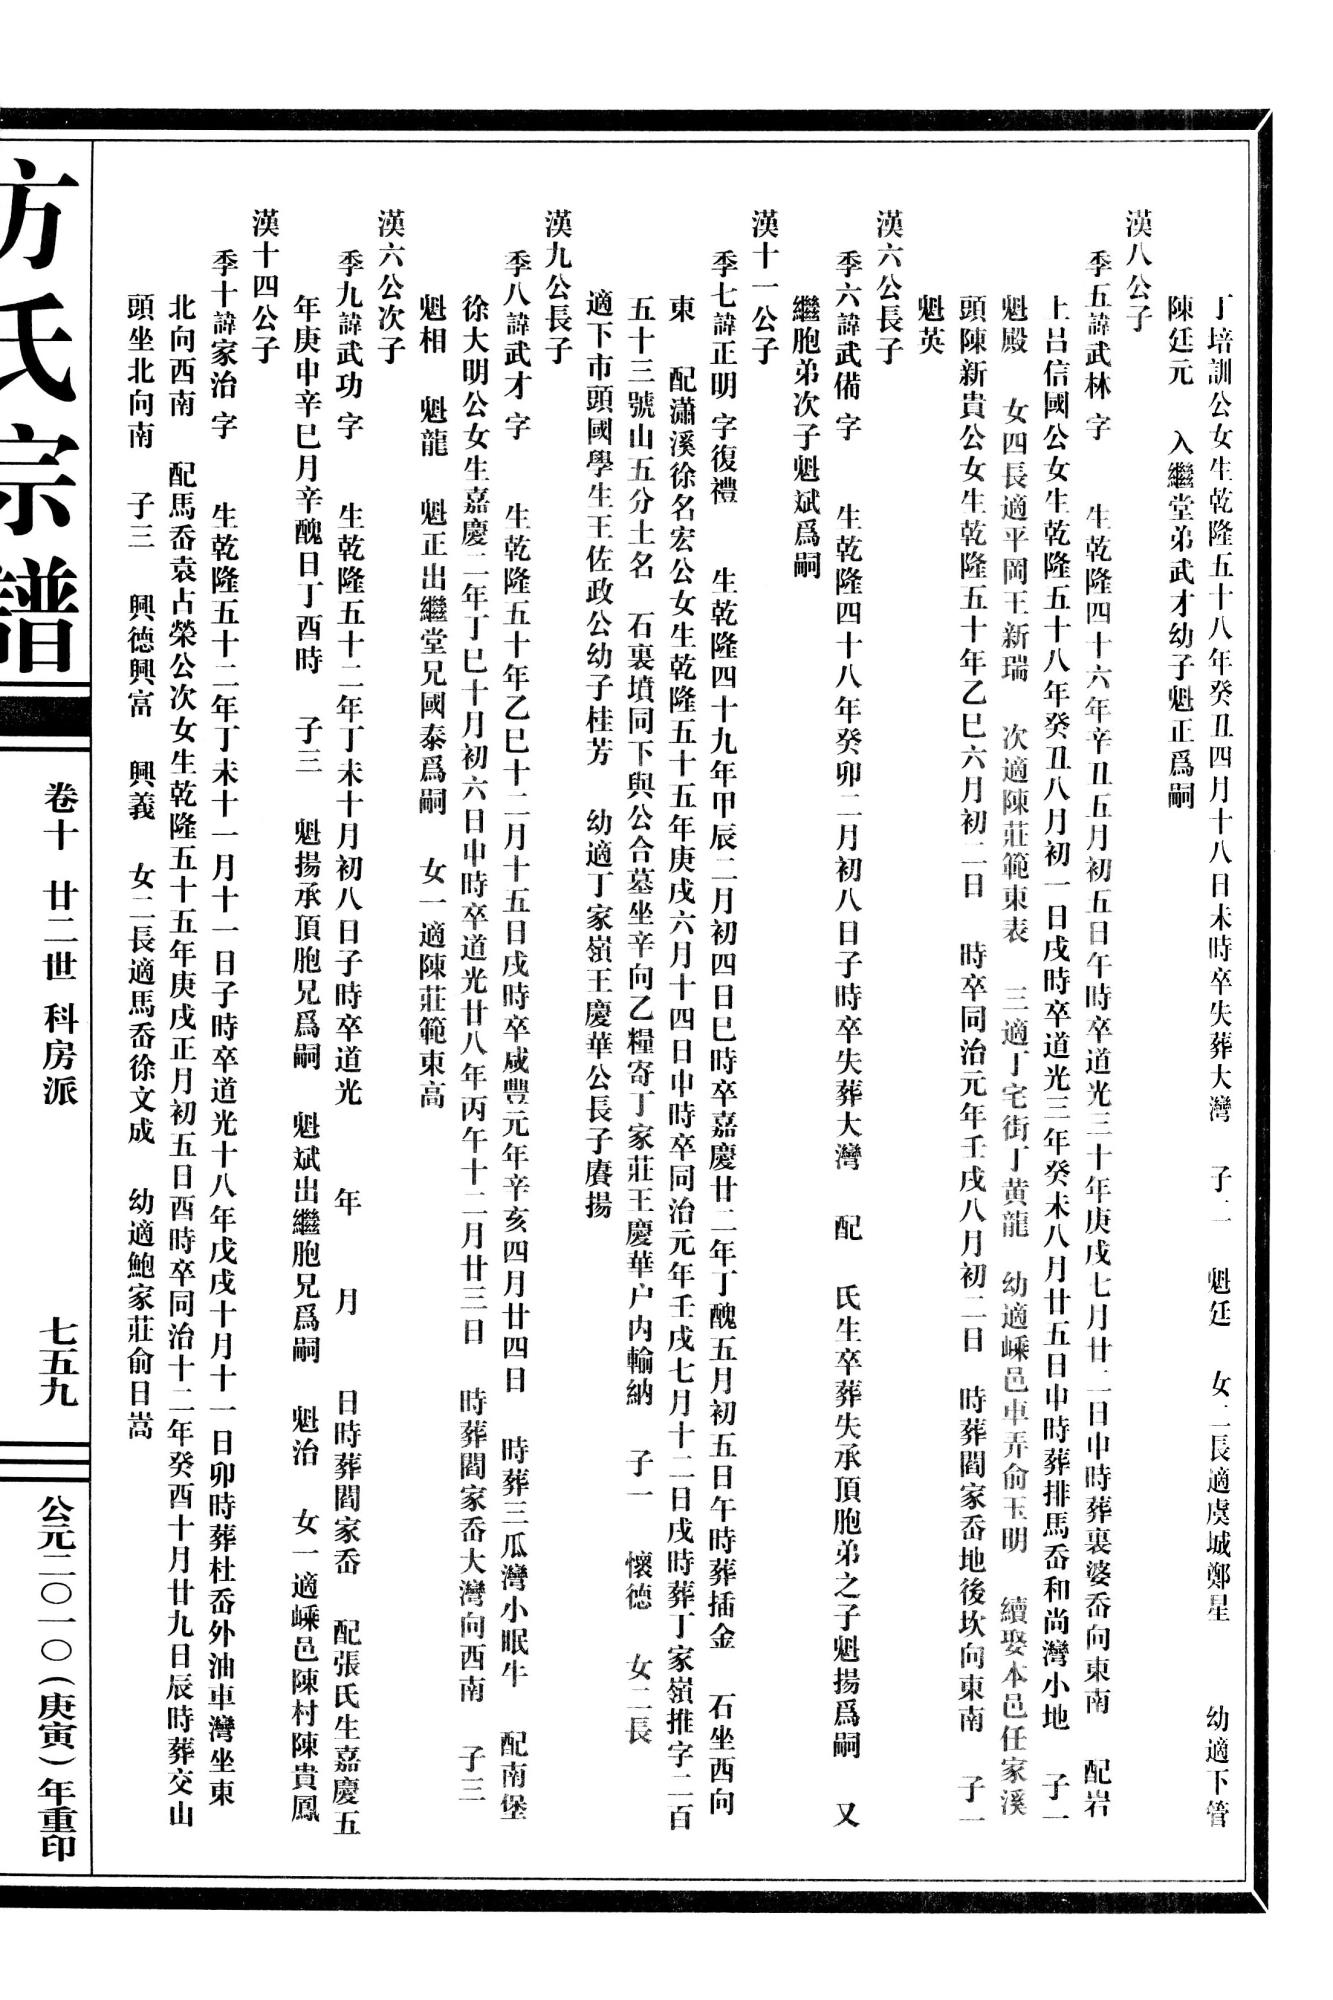 丁培訓公女生乾隆五十八年癸丑四月十八日未時卒失葬大灣　子一　魁廷　女二長適虞城鄭星　幼適下管
陳廷元　入繼堂弟武才幼子魁正爲嗣
漢八公子
季五諱武林 字　生乾隆四十六年辛丑五月初五日午時卒道光三十年庚戌七月廿二日申時葬裏婆岙向東南　配岩
上呂信國公女生乾隆五十八年癸丑八月初一日戌時卒道光三年癸未八月廿五日申時葬排馬岙和尚灣小地　子一
魁殿　女四長適平岡王新瑞　次適陳莊範東表　三適丁宅街丁黃龍　幼適嵊邑車弄俞玉明　續娶本邑任家溪
頭陳新貴公女生乾隆五十年乙巳六月初二日　時卒同治元年壬戌八月初二日　時葬閻家岙地後坎向東南　子一
魁英
漢六公長子
季六諱武備 字　生乾隆四十八年癸卯二月初八日子時卒失葬大灣　配　氏生卒葬失承頂胞弟之子魁揚爲嗣　又
繼胞弟次子魁斌爲嗣
漢十一公子
季七諱正明 字復禮　生乾隆四十九年甲辰二月初四日巳時卒嘉慶廿二年丁醜五月初五日午時葬插金　石坐西向
東　配瀟溪徐名宏公女生乾隆五十五年庚戌六月十四日申時卒同治元年壬戌七月十二日戌時葬丁家嶺推字二百
五十三號山五分土名　石裏墳同下與公合墓坐辛向乙糧寄丁家莊王慶華户内輸納　子一　懷德　女二長
適下市頭國學生王佐政公幼子桂芳　幼適丁家嶺王慶華公長子賡揚
漢九公長子
季八諱武才 字　生乾隆五十年乙巳十二月十五日戌時卒咸豐元年辛亥四月廿四日　時葬三瓜灣小眠牛　配南堡
徐大明公女生嘉慶二年丁巳十月初六日申時卒道光廿八年丙午十二月廿三日　時葬閻家岙大灣向西南　子三
魁相　魁龍　魁正出繼堂兄國泰爲嗣　女一適陳莊範東高
漢六公次子
季九諱武功 字　生乾隆五十二年丁未十月初八日子時卒道光　年　月　日時葬閻家岙　配張氏生嘉慶五
年庚申辛巳月辛醜日丁酉時　子三　魁揚承頂胞兄爲嗣　魁斌出繼胞兄爲嗣　魁治　女一適嵊邑陳村陳貴鳳
漢十四公子
季十諱家治 字　生乾隆五十二年丁未十一月十一日子時卒道光十八年戊戌十月十一日卯時葬杜岙外油車灣坐東
北向西南　配馬岙袁占榮公次女生乾隆五十五年庚戌正月初五日酉時卒同治十二年癸酉十月廿九日辰時葬交山
頭坐北向南　子三　興德興富　興義　女二長適馬岙徐文成　幼適鮑家莊俞日嵩
方氏宗譜
卷十　廿二世　科房派
七五九
公元二〇一〇（庚寅）年重印